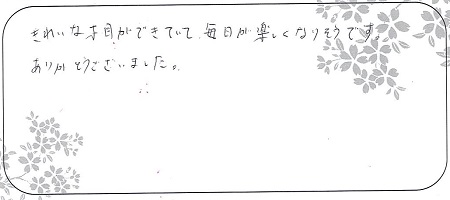 きれいな本目ができていて、毎日が楽しくなりそうです。
ありがとうございました。